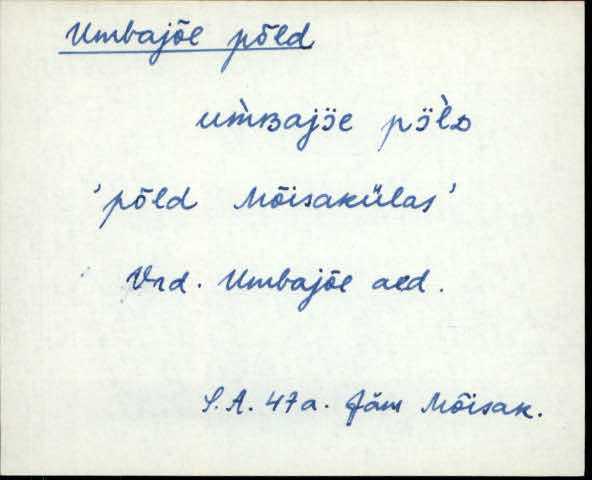 Umbajõe põld
um̀ʙajöe pöl̀ᴅ
'põld Mõisakülas'
Vrd. Umbajõe aed.
S.A. 47a. Jäm Mõisak.